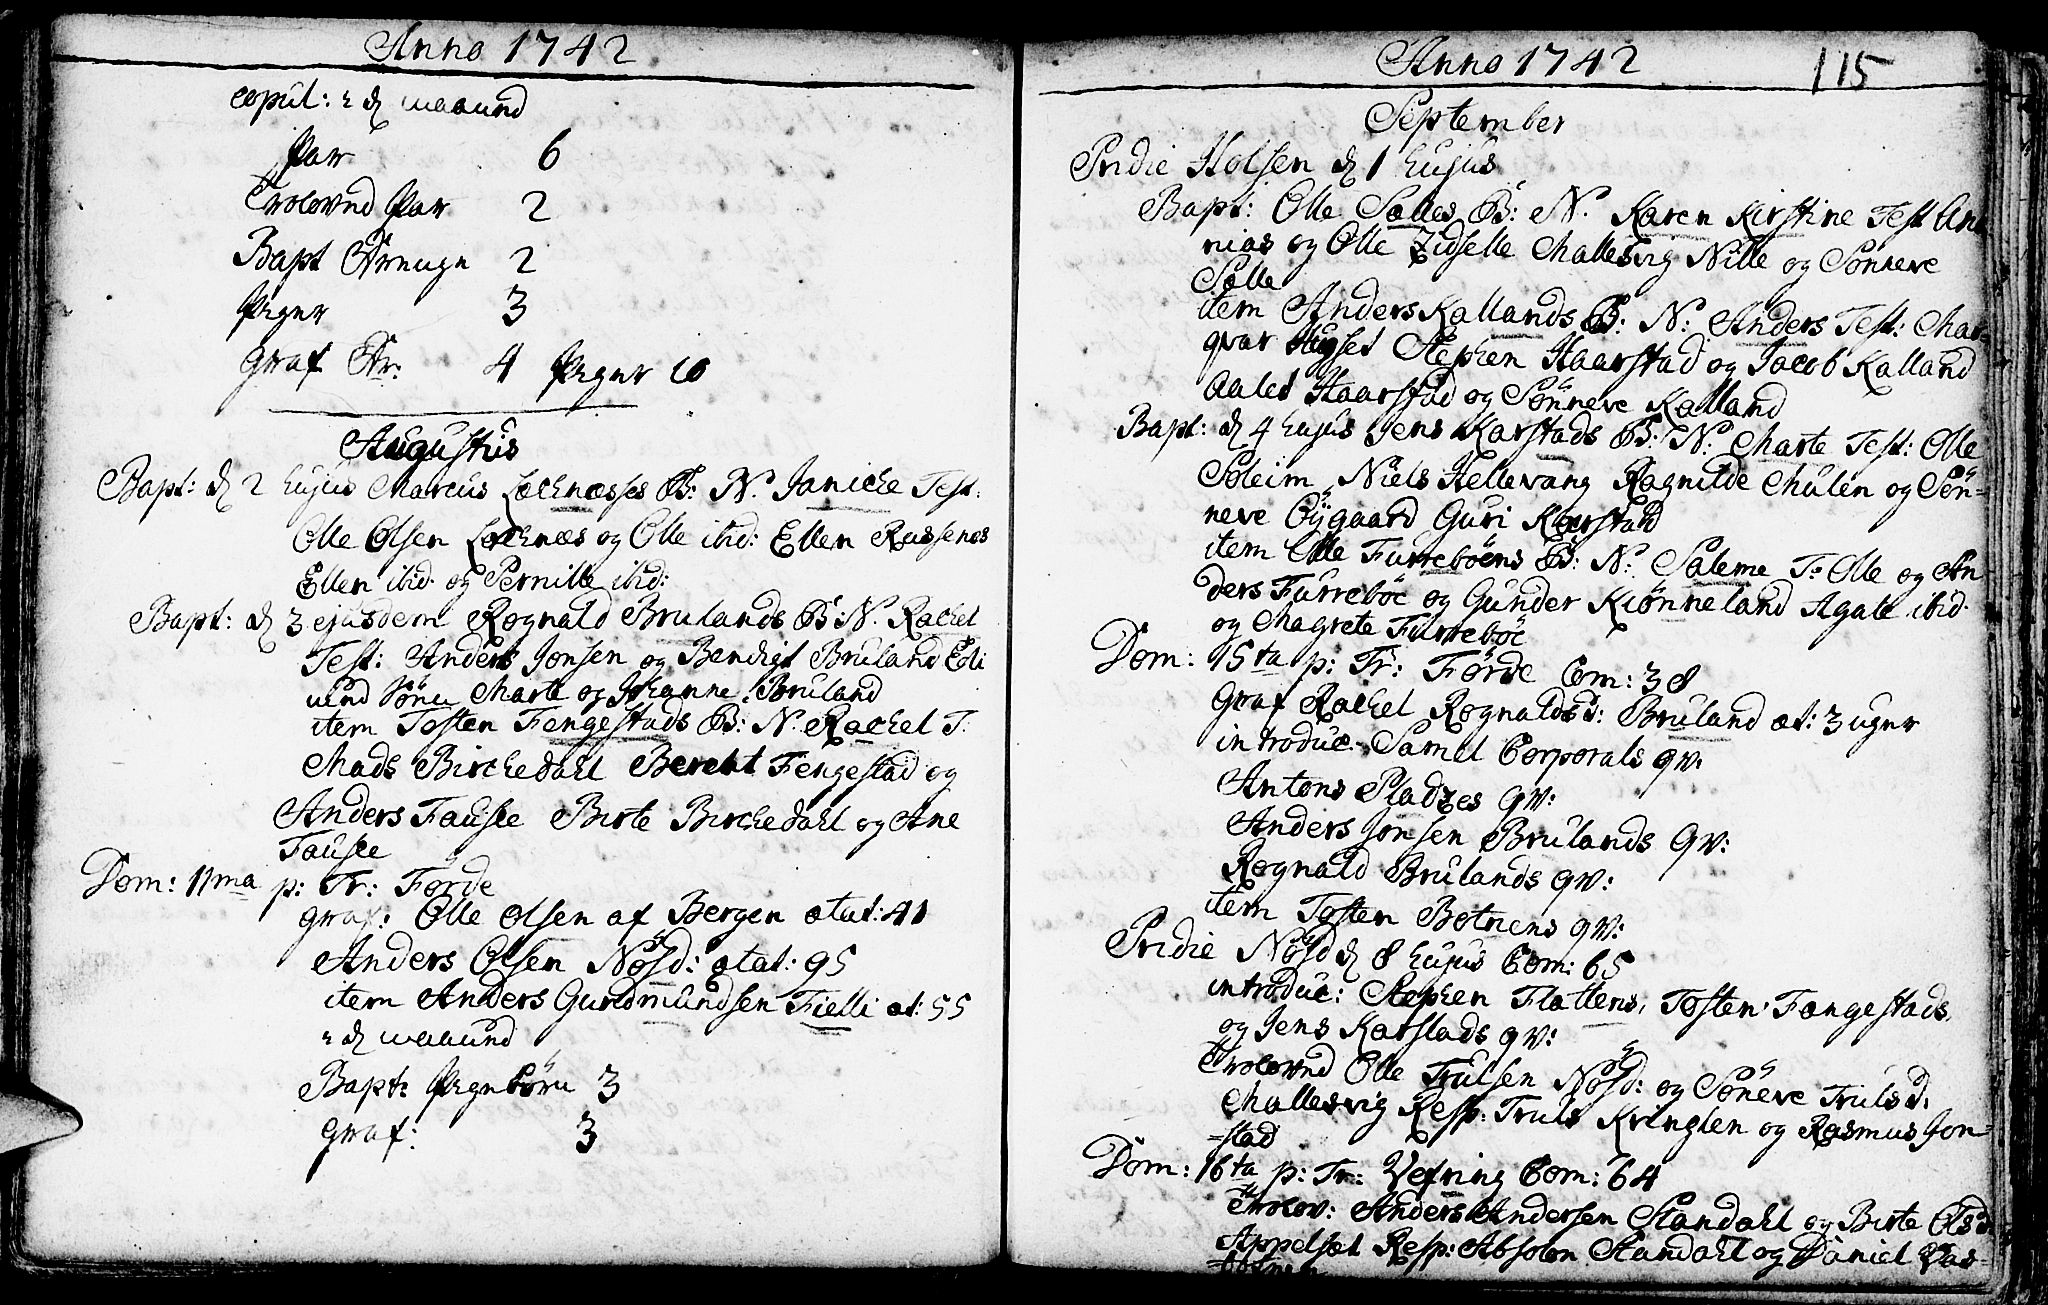 Anno 1742
copul: i d maaned
Par 6
Trolovnd Par 2
Bapt Drenge 2
Piger 3
Graf Dr: 4 Piger 10
Augustus
Bapt: d 2 hujus Marcus Lechnæsses B: N. Janiche Test:
Olle Olsen Lechnæs og Olle ibid: Ellen Russenes
Ellen ibid og Pernille ibid:
Bapt: d 3 ejusdem Rognald Brulands B: N. Rachel
Test: Anders Jonsen og Bendigt Bruland Edi
Marte og Johanne Bruland
item Tosten Fengestads B: N. Rachel T:
Mads Birchedahl Berent Fengestad og
Anders Fauske Birte Birchedahl og Ane
Fauske
Dom: 11ma p: Tr: Førde
graf: Olle Olsen af Bergen ætat: 41
Anders Olsen Nøsd: ætat: 95
item Anders Gundmundsen Fielli æt: 55
i d maaned
Bapt: Pigebørn 3
graf: 3
Anno 1742 115
September
Pridie Holsen d 1 hujus
Bapt: Olle Sølles B: N. Karen Kirstine Test Ana
nias og Olle Zidselle Mallesvig Nille og Sønneve
Sølle
item Anders Kallands B: N: Anders Test: Mar-
qvar Huset Stephen Haarstad og Jacob Kalland
Aalet Haarstad og Sønneve Kalland
Bapt: d 4 hujus Jens Karstads B: N. Marte Test: Olle
Soleim Niels Hellevang Ragnilde Mulen og Søn-
neve Øÿgaard Guri Karstad
item Olle Furrebøens B: N: Saleme T: Olle og An
ders Furrebøe og Gunder Kiønneland Agate ibid.
og Magrete Furrebøe
Dom: 15ta p: Tr: Førde Com: 38
Graf Rachel Rognaldsd: Bruland æt: 3 uger
introduc: Samel Corporals qv:
Antons Pladzes qv:
Anders Jonsen Brulands qv:
Rognald Brulands qv:
item Tosten Botnens qv:
Pridie Nøsd d 8 hujus Com: 65
introduc: Stephen Flattens, Tosten Fængestads
og Jens Karstads qv:
Trolovnd Olle Trulsen Nøsd: og Sønneve Trulsd:
Mallesvig Resp: Truls Kringlen og Rasmus Jon-
=stad
Dom: 16ta p: Tr: Vefring Com: 64
Trolov: Anders Andersen Standahl og Birte Olsd
Appelset Resp: Absolon Standahl og Daniel Vas-